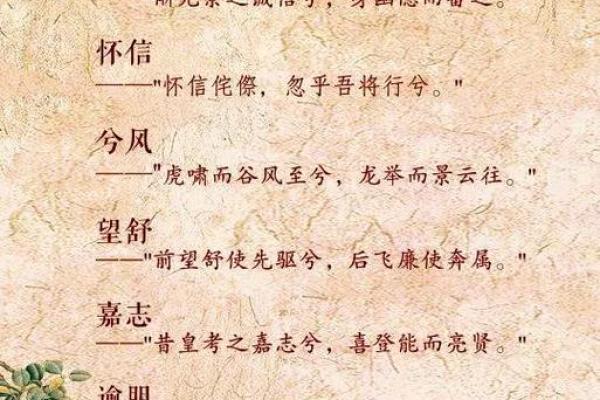 景之诚信兮，身幽隐而备之。
怀信
——"怀信侘傺，忽乎吾将行兮。"
兮风
——"虎啸而谷风至兮，龙举而景云往。"
望舒
——"前望舒使先驱兮，后飞廉使奔属。"
嘉志
——"昔皇考之嘉志兮，喜登能而亮贤。"